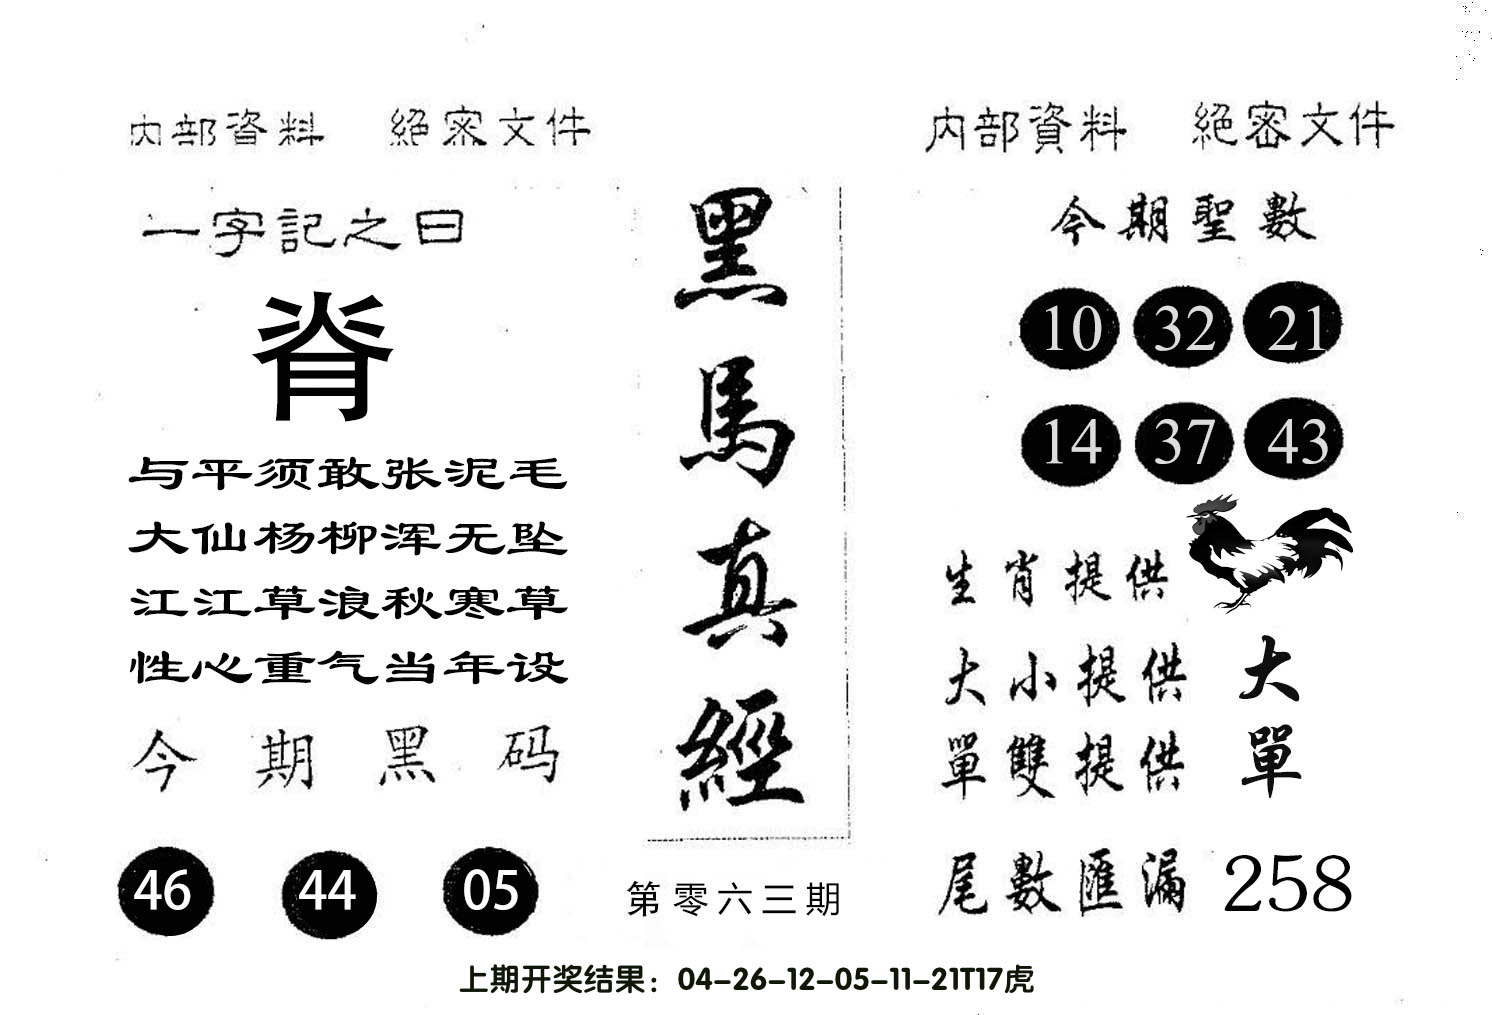 内部資料 絕密文件
一字記之曰
脊
与平须敢张泥毛
大仙杨柳浑无坠
江江草浪秋寒草
性心重气当年设
今期黑码
46 44 05
黑馬真經
第零六三期
内部資料 絕密文件
今期聖數
10 32 21
14 37 43
生肖提供
大小提供 大
單雙提供 單
尾數匯漏 258
上期开奖结果：04-26-12-05-11-21T17虎